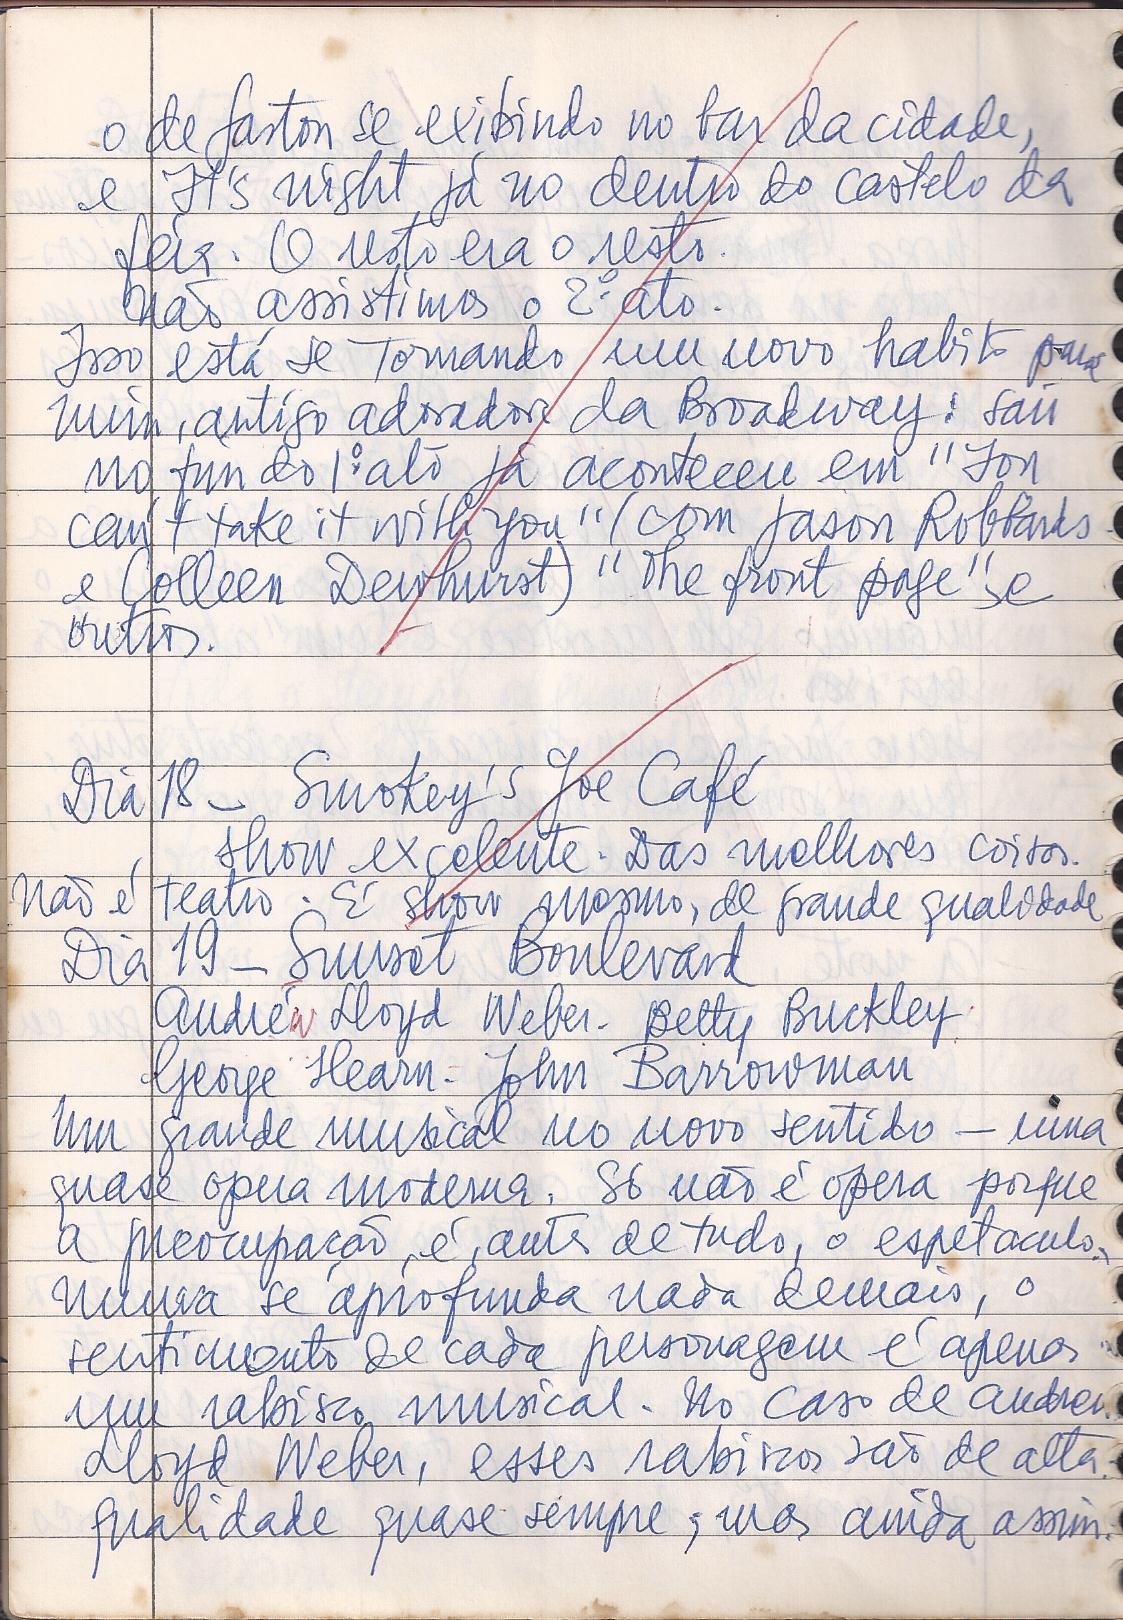 o de Gaston se exibindo no bar da cidade,
e It's night, já no dentro do castelo da
fera. O resto era o resto.
Não assistimos o 2º ato.
Isso está se tornando um novo habito para
mim, antigo adorador da Broadway: sair
no fim do 1º ato já aconteceu em "You
can't take it with you" (com Jason Robbards
e Colleen Dewhurst) "The front page" e
outros.
Dia 18 - Smokey's Joe Café
show excelente. Das melhores coisas.
Não é teatro. É show mesmo, de grande qualidade
Dia 19 - Sunset Boulevard
Andrew Lloyd Weber. Betty Buckley
George Hearn - John Barrowman
Um grande musical no novo sentido - uma
quase opera moderna. Só não é opera porque
a preocupação, é, antes de tudo, o espetaculo.
Nunca se aprofunda nada demais, o
sentimento de cada personagem é apenas
um rabisco musical. No caso de Andrew
Lloyd Weber, esses rabiscos são de alta
qualidade quase sempre, mas ainda assim.